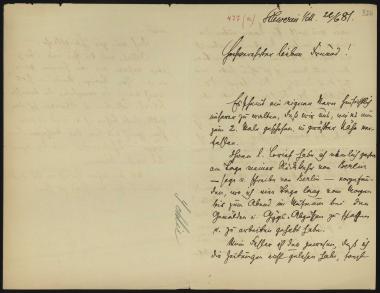 477 (a)
326
Schwerin i/M. 22/6 81.
Hochverehrter lieber Freund!
Es scheint ein eigener Stern
unserer zu walten, daß wir uns, wie es nun
zum 2. Male geschehen, in größter Nähe ver-
fehlen.
Ihren l. Brief habe ich nämlich gestern
am Tage meiner Rückkehr von Berlin
— sage u. schreibe von Berlin — vorgefun-
den, wo ich vier Tage lang vom Morgen
bis zum Abend im Museum bei den
Gemälden u. Gyps-Abgüssen zu schaffen
u. zu arbeiten gehabt habe.
Mein Fehler ist der gewesen, daß ich
die Zeitungen nicht gelesen habe, sonst
Schlie